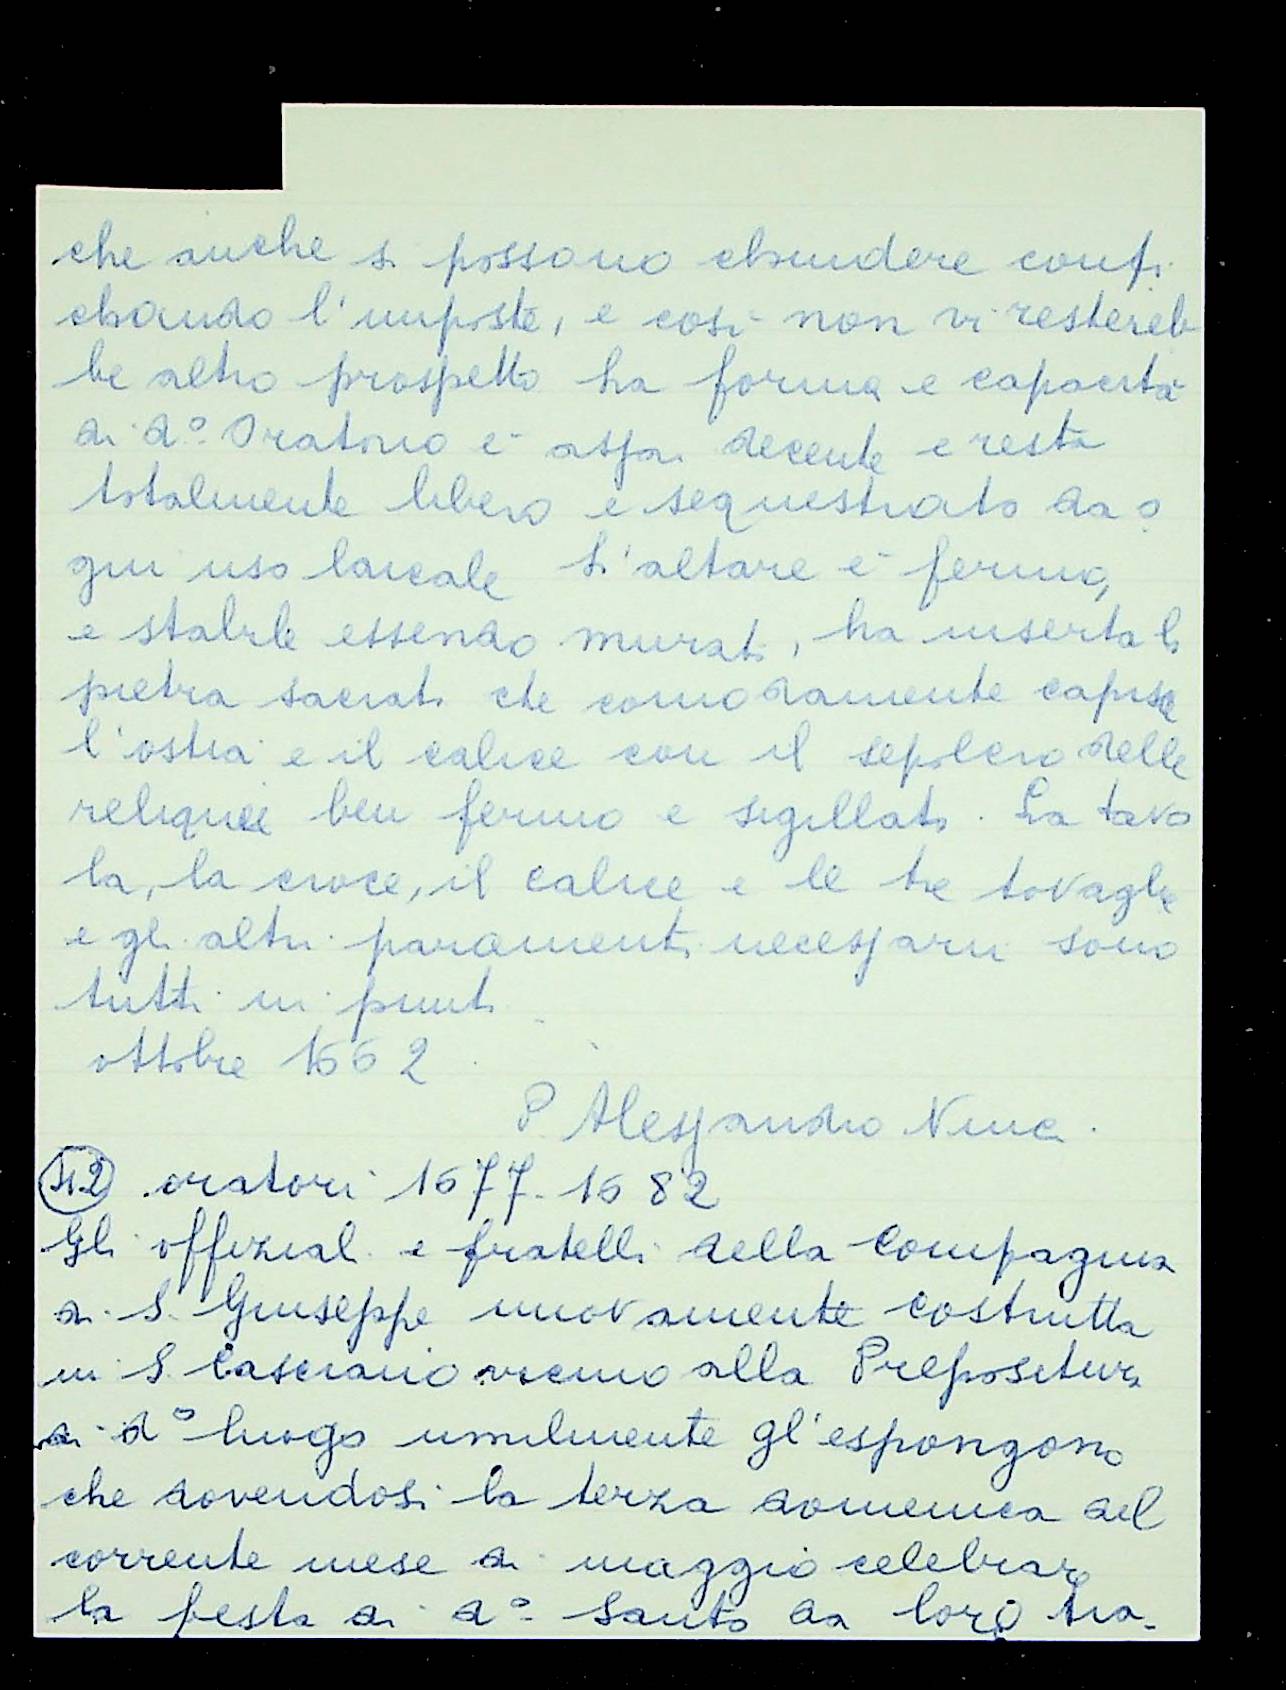 che anche si possono chiudere confi
chando l'imposte, e così non vi restereb
be altro prospetto ha forma e capacità
di d.º Oratorio è assai decente e resta
totalmente libero e sequestrato da o
gni uso laicale L'altare è fermo,
e stabile essendo murato, ha inserta la
pietra sacrata che comodamente capisce
l'ostia e il calice con il sepolcro delle
reliquie ben fermo e sigillato. La tavo
la, la croce, il calice e le tre tovaglie
e gli altri paramenti necessarii sono
tutti in punto
ottobre 1662
P. Alessandro
42 oratori 1677-1682
Gli offizial. e fratelli della Compagnia
di S. Giuseppe nuovamente costrutta
in S. Casciano vicino alla Prepositura
di d.º luogo umilmente gl'espongono
che dovendosi la terza domenica del
corrente mese di maggio celebrare
la festa di d.º Santo da loro tra-